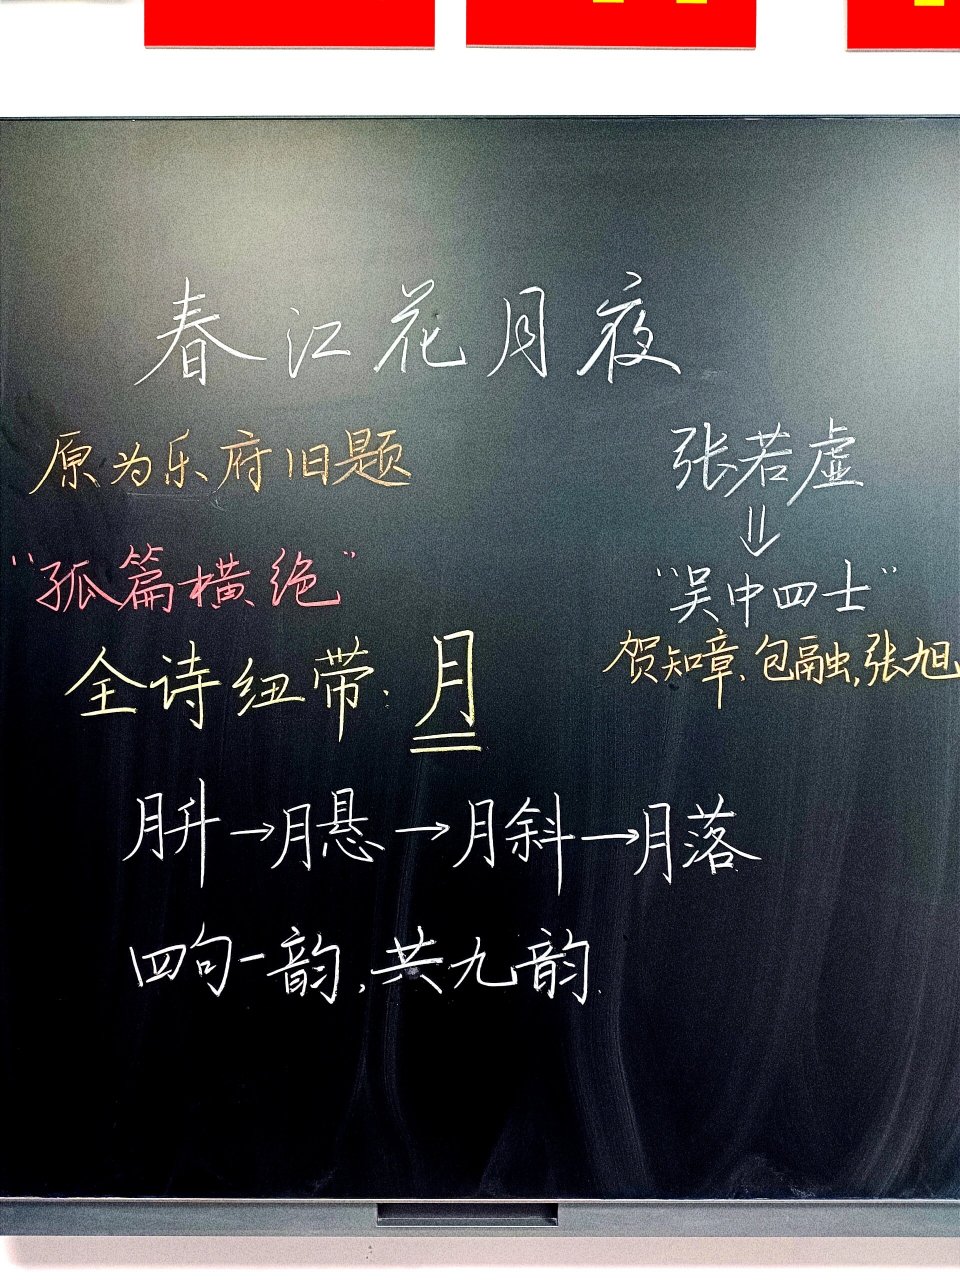 春江花月夜
原为乐府旧题
张若虚
⇓
“孤篇横绝”
“吴中四士”
贺知章、包融,张旭
全诗纽带:月
月升→月悬→月斜→月落
四句一韵,共九韵.